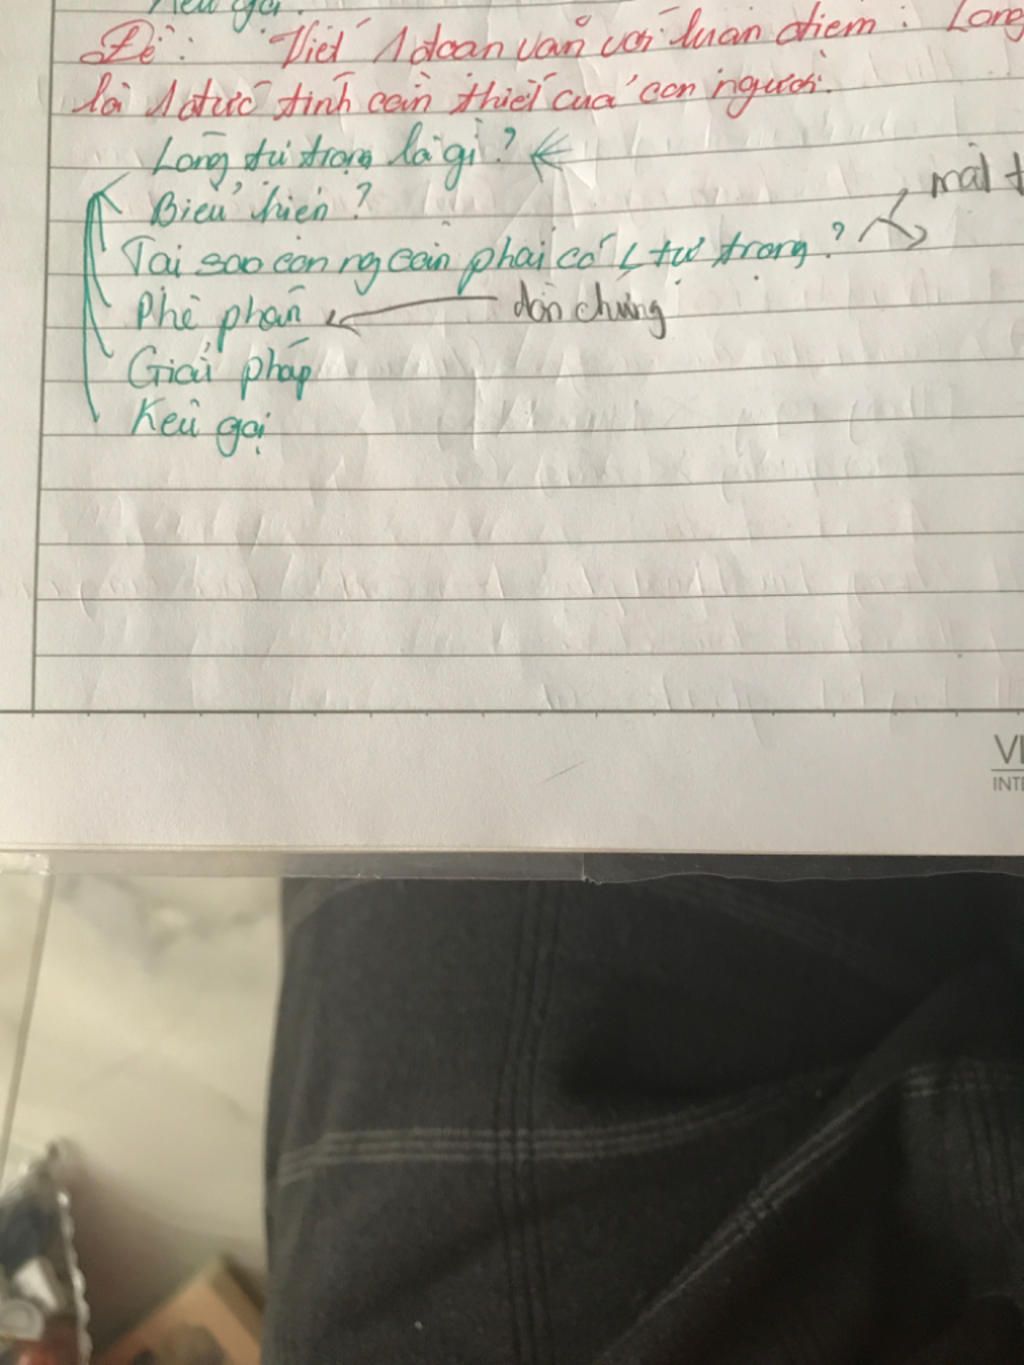 Kêu gọi.
Đề: "Viết 1 đoạn văn với luận điểm: Lòng
là 1 đức tính cần thiết của con người.
Lòng tự trọng là gì?
Biểu hiện?
mặt
Tại sao con ng cần phải có L tự trọng?
Phê phán
dẫn chứng
Giải pháp
Kêu gọi
VI
INTE